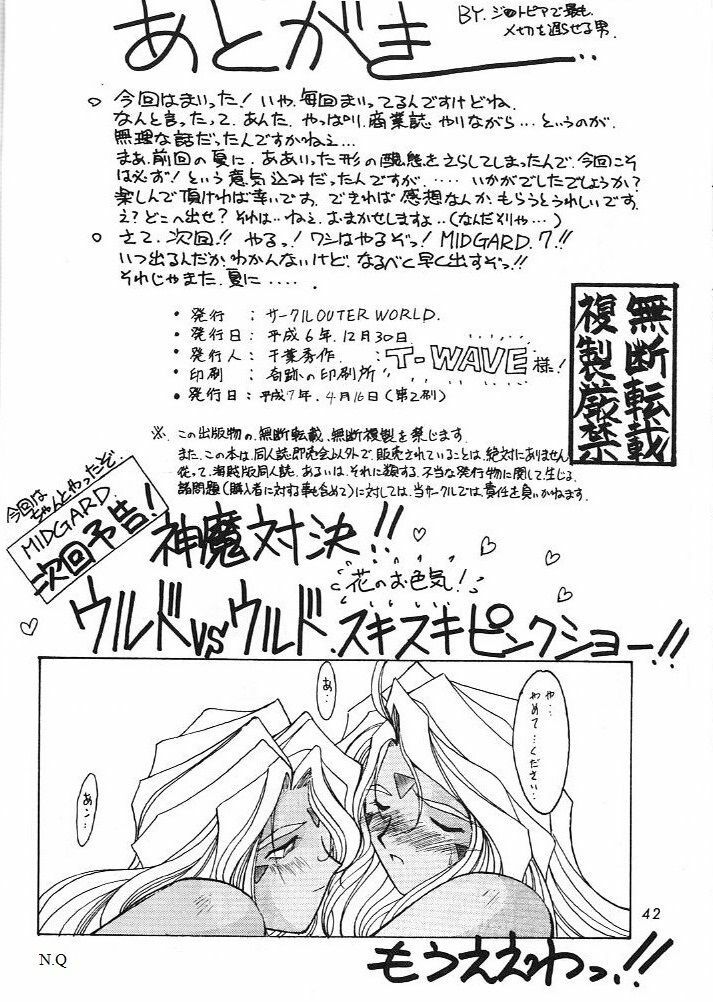 あとがき‥
BY.ジオトピアで最も
〆切を遅らせる男.
○ 今回はまいった!いや、毎回まいってるんですけどね.
なんと言ったって、あんた、やっぱり、商業誌やりながら…というのが、
無理な話だったんですかねえ…
まあ、前回の夏に、ああいった形の醜態をさらしてしまったんで、今回こそ
は必ず!という意気込みだったんですが、…‥いかがでしたでしょうか?
楽しんで頂ければ幸いです.できれば感想なんか、もらうとうれしいです.
え?どこへ出せ?それは‥ねえ、おまかせしますよ‥(なんだそりゃ…)
○ さて、次回!!やるっ!ワシはやるぞっ!MIDGARD.7!!
いつ出るんだか、わかんないけど、なるべく早く出すぞっ!!
それじゃまた、夏に‥‥.
・発行 : サークルOUTER WORLD.
・発行日:平成6年.12月30日.
・発行人:千葉秀作.
・印刷 :奇跡の印刷所 : T-WAVE様!
・発行日:平成7年.4月16日(第2刷)
無断転載
複製厳禁
※.この出版物の、無断転載、無断複製を禁じます.
また、この本は、同人誌即売会以外で、販売されていることは、絶対にありません
従って、海賊版同人誌、あるいは、それに類する、不当な発行物に関して生じる、
諸問題(購入者に対する事も含めて)に対しては、当サークルでは、責任を負いかねます.
今回は
ちゃんとやったぞ.
MIDGARD
次回予告!
神魔対決!!
花のお色気!
ウルドvsウルド.スキスキピンクショー!!
や…
やめて…ください…
あ…
あン…
42
N.Q
もうええわっ.!!